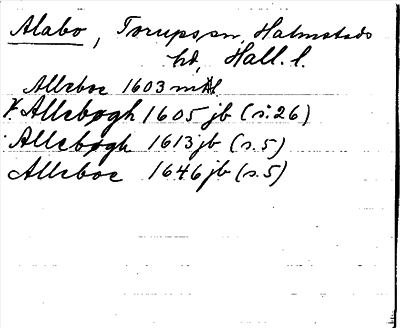 Alabo, Torups sn, Halmstads
hd, Hall. l.
Alleboe 1603 mtl
V. Allebogh 1605 jb (s. 26)
Allebogh 1613 jb (s. 5)
Alleboe 1646 jb (s. 5)